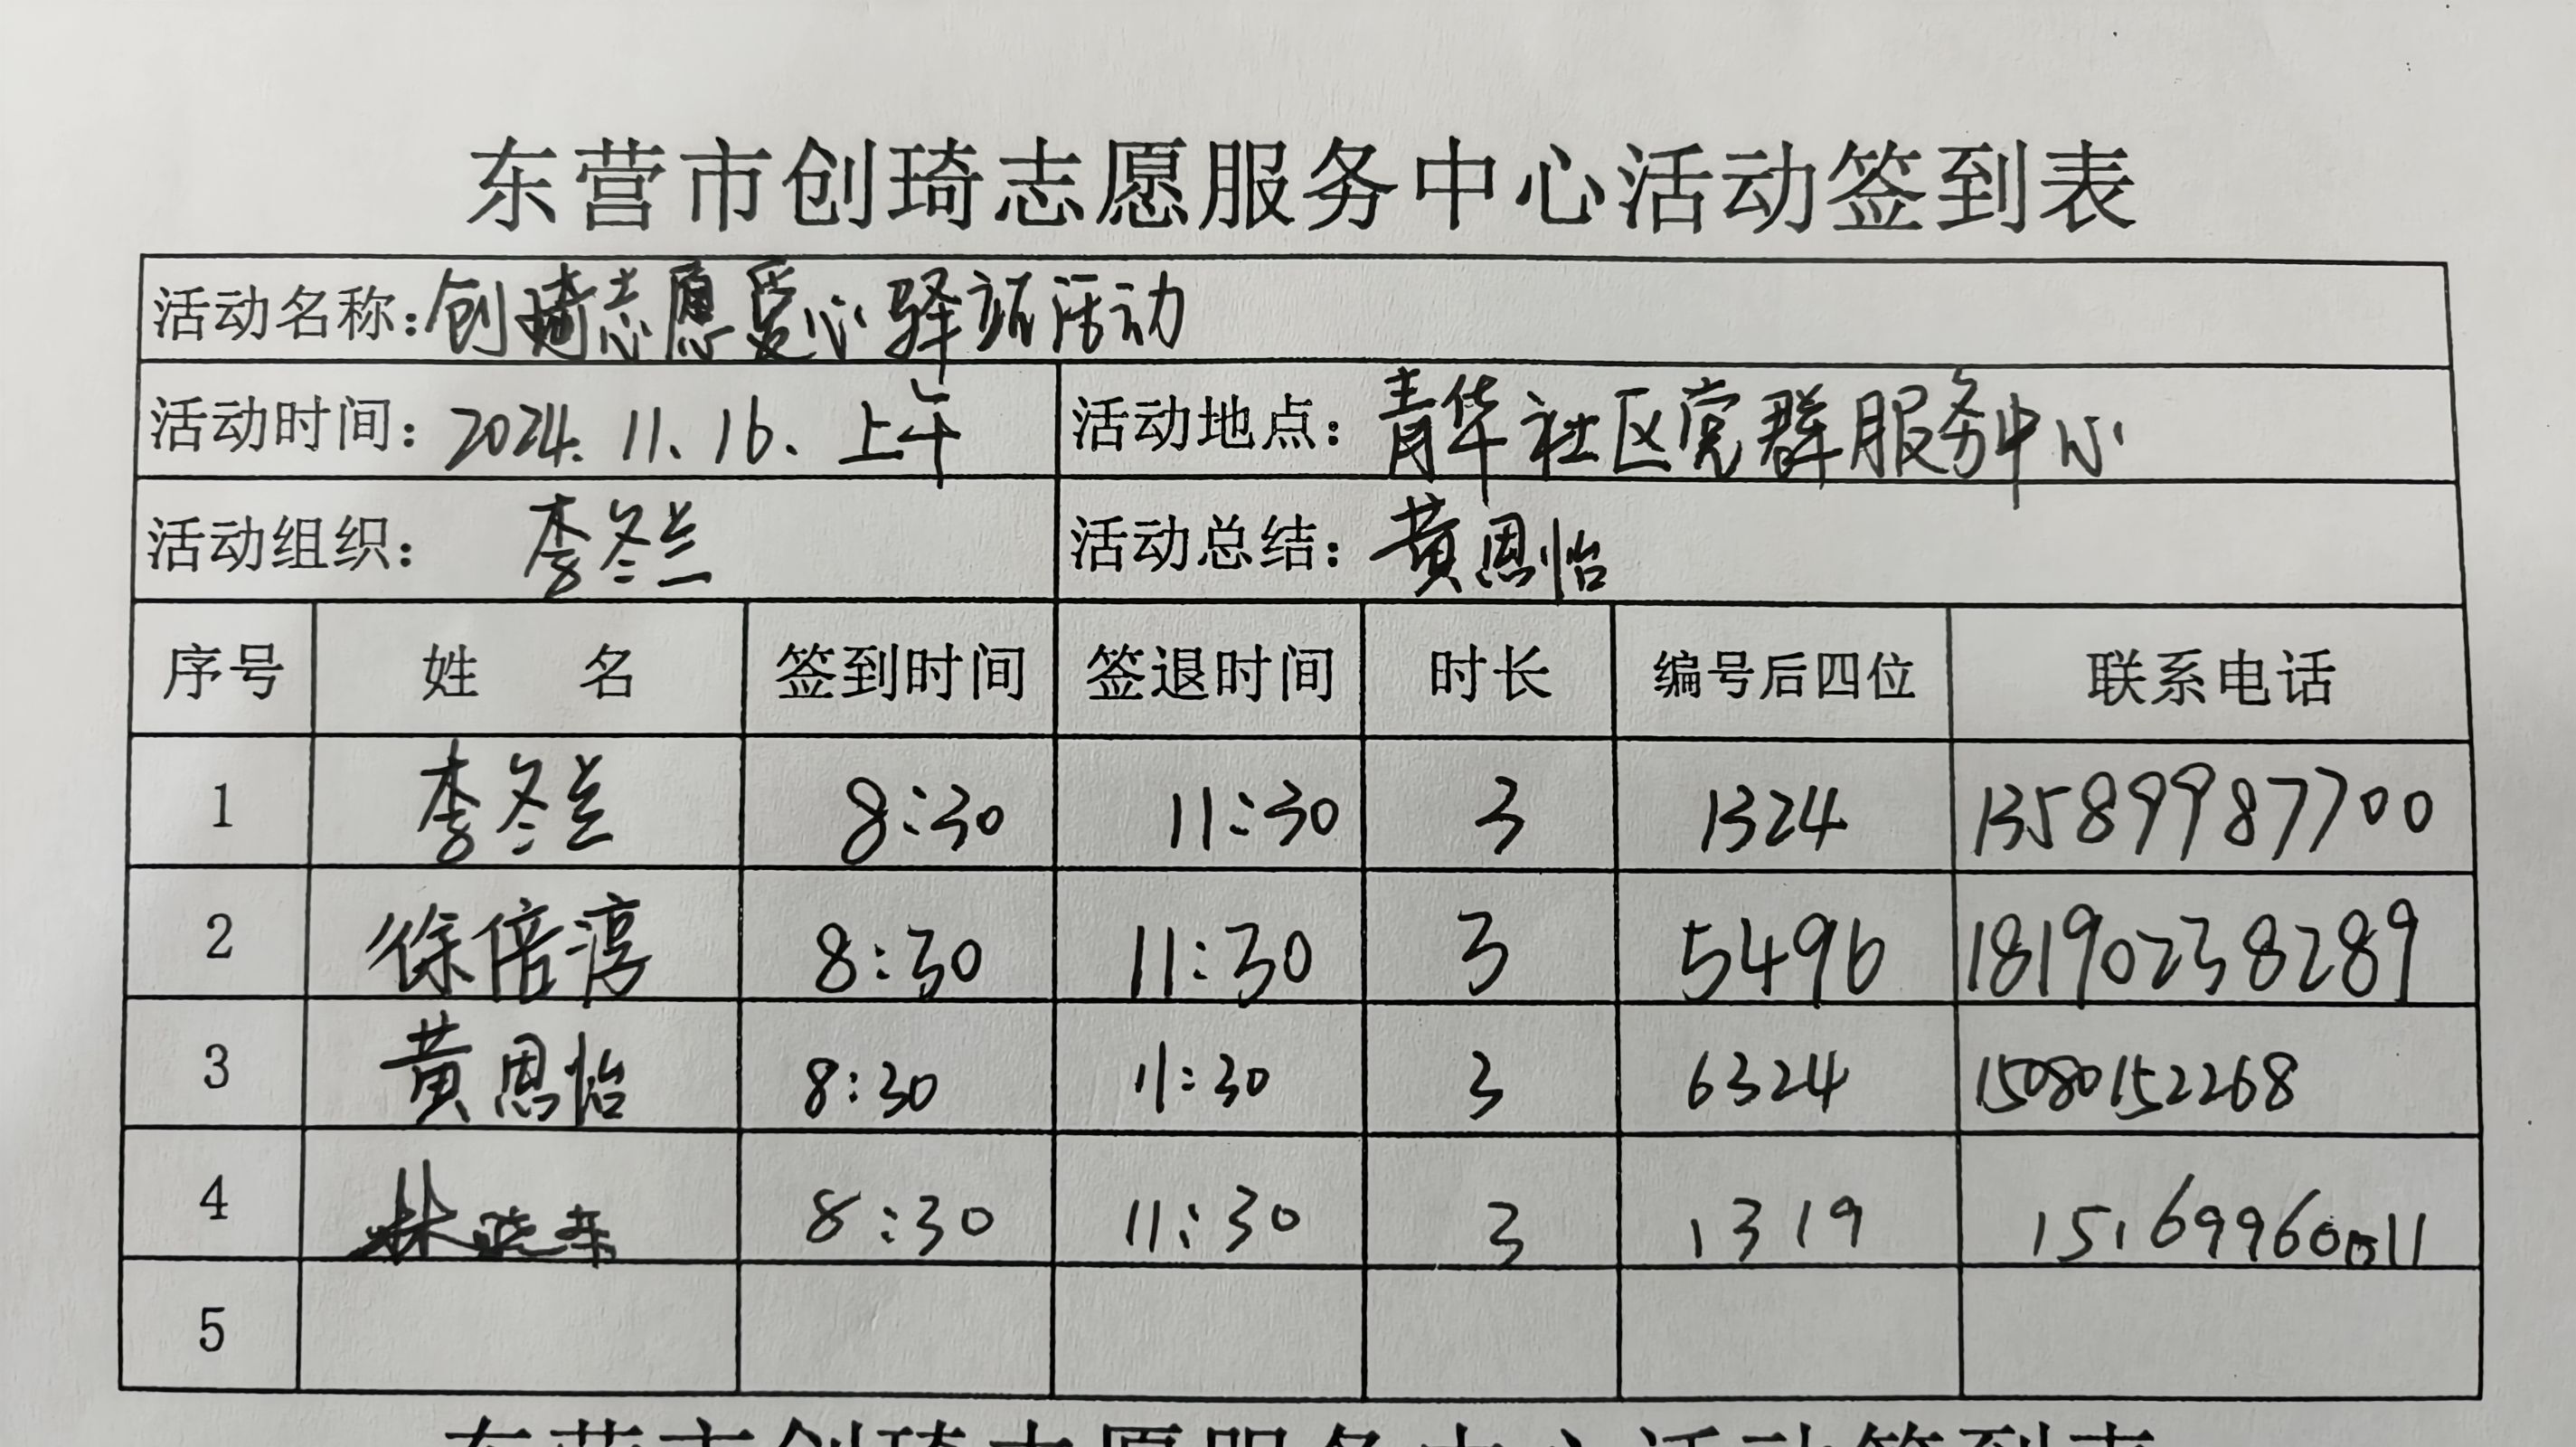 东营市创琦志愿服务中心活动签到表
活动名称：创琦志愿爱心驿站活动
活动时间：2024.11.16.上午 活动地点：青华社区党群服务中心
活动组织：李冬兰 活动总结：黄恩怡
序号 姓名 签到时间 签退时间 时长 编号后四位 联系电话
1 李冬兰 8:30 11:30 3 1324 13589987700
2 徐倍淳 8:30 11:30 3 5496 18190238289
3 黄恩怡 8:30 11:30 3 6324 15080152268
4 林晓东 8:30 11:30 3 1319 15169960011
5
东营市创琦志愿服务中心活动签到表